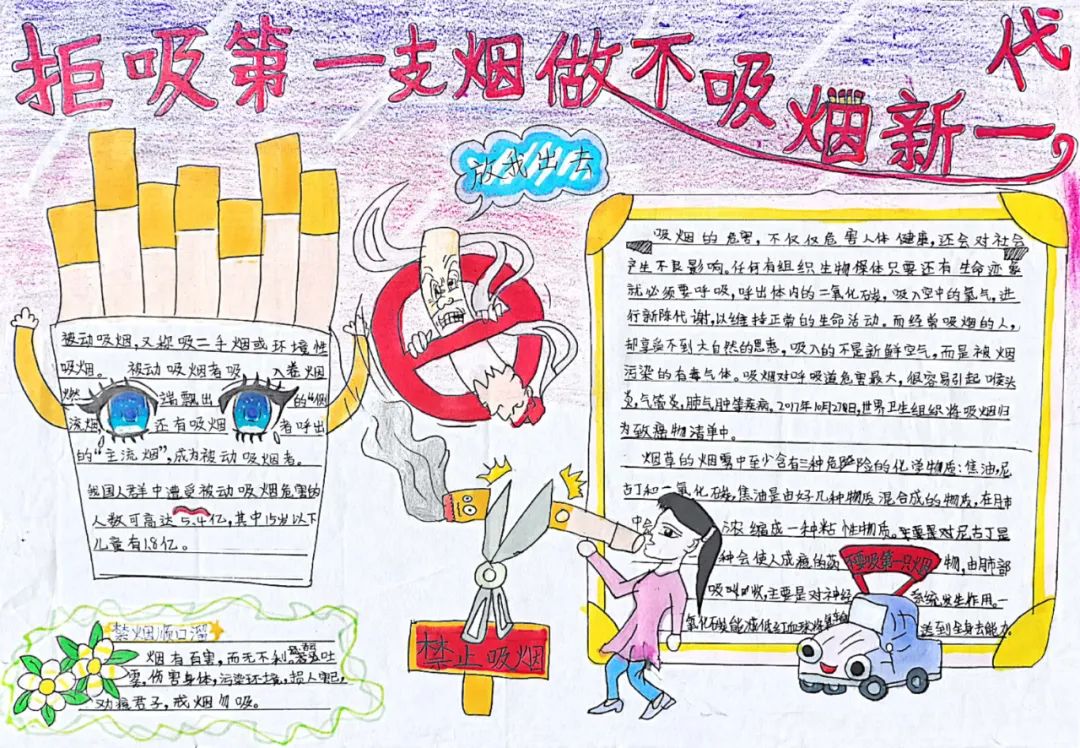 拒吸第一支烟做不吸烟新一代
放我出去
被动吸烟,又称吸二手烟或环境性
吸烟。被动吸烟者吸入卷烟
燃端飘出的“侧
流烟还有吸烟者呼出
的“主流烟”,成为被动吸烟者。
我国人群中遭受被动吸烟危害的
人数可高达5.4亿,其中15岁以下
儿童有1.8亿。
禁烟顺口溜
烟有百害,而无不利。吐
雾,伤害身体,污染环境,损人害己,
劝猿君子,戒烟勿吸。
禁止吸烟
吸烟的危害,不仅仅危害人体健康,还会对社会
产生不良影响。任何有组织生物媒体只要还有生命迹象
就必须要呼吸,呼出体内的二氧化碳,吸入空中的氧气,进
行新陈代谢,以维持正常的生命活动。而经常吸烟的人,
却享受不到大自然的恩惠,吸入的不是新鲜空气,而是被烟
污染的有毒气体。吸烟对呼吸道危害最大,很容易引起喉头
炎,气管炎,肺气肿等疾病,2017年10月27日,世界卫生组织将吸烟归
为致癌物清单中。
烟草的烟雾中至少含有三种危险的化学物质:焦油,尼
古丁和一氧化碳,焦油是由好几种物质混合成的物质,在肺
中会浓缩成一种粘性物质。主要是对尼古丁是
种会使人成瘾的药物,由肺部
吸收,主要是对神经系统发生作用。一
氧化碳能减低红血球将送到全身去能力。
不要吸第一只烟